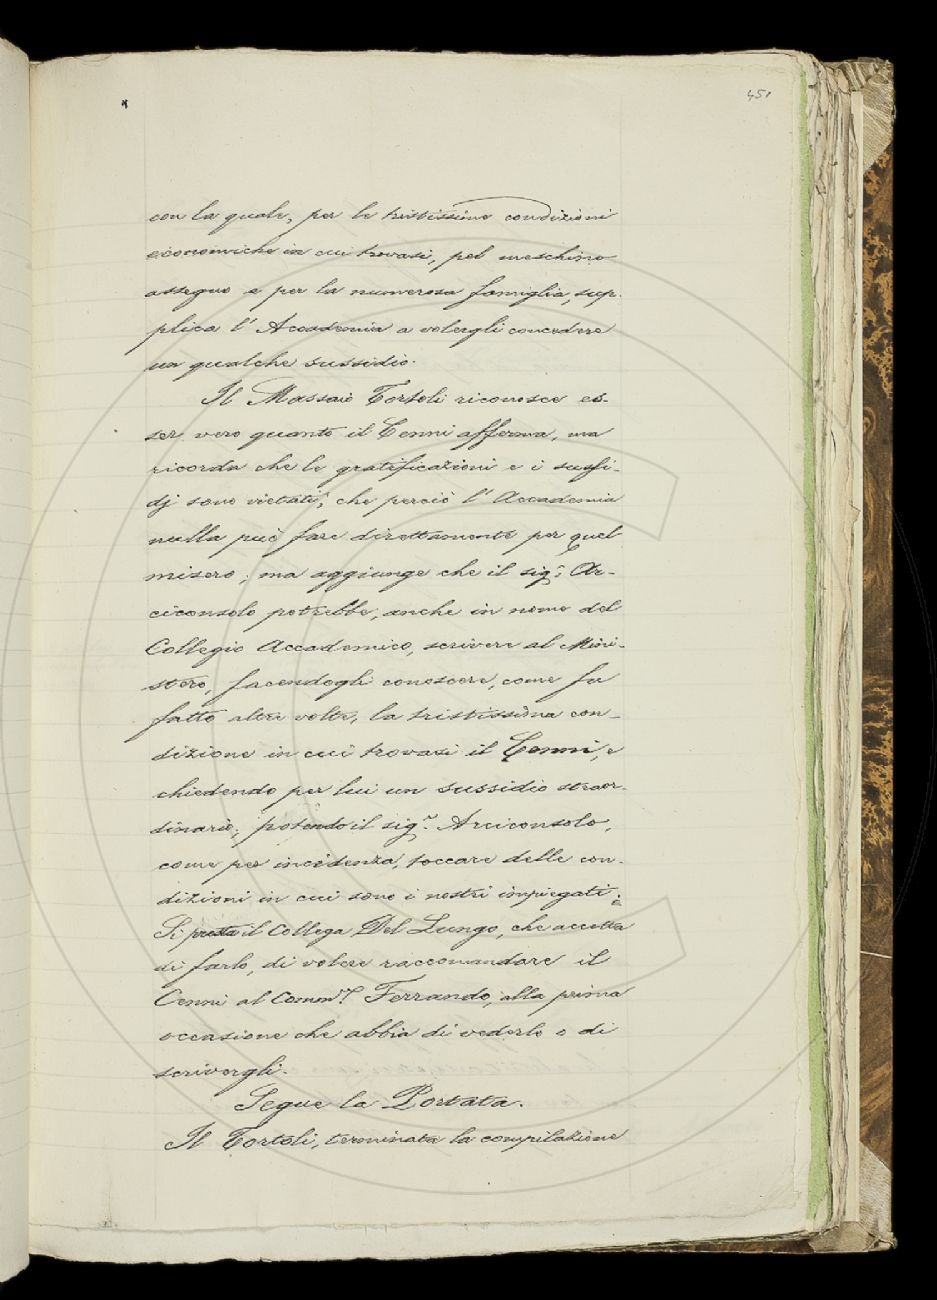 451
con la quale, per le tristissime condizioni
economiche in cui trovasi, pel meschino
assegno e per la numerosa famiglia, sup-
plica l'Accademia a volergli concedere
un qualche sussidio.
Il Massaio Tortoli riconosce es-
ser vero quanto il Cenni afferma, ma
ricorda che le gratificazioni e i sussi-
dj sono vietati; che perciò l'Accademia
nulla può fare direttamente per quel
misero; ma aggiunge che il sigr. Ar-
ciconsolo potrebbe, anche in nome del
Collegio Accademico, scrivere al Mini-
stero, facendogli conoscere, come fu
fatto altre volte, la tristissima con-
dizione in cui trovasi il Cenni, e
chiedendo per lui un sussidio straor-
dinario; potendo il sigr. Arciconsolo,
come per incidenza, toccare delle con-
dizioni in cui sono i nostri impiegati;
Si presta il Collega Del Lungo, che accetta
di farlo, di volere raccomandare il
Cenni al Comm.r Ferrando, alla prima
occasione che abbia di vederlo o di
scrivergli.
Segue la Portata.
Il Tortoli, terminata la compilazione